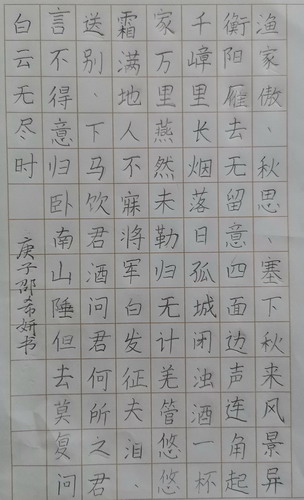 渔家傲、秋思、塞下秋来风景异
衡阳雁去无留意四面边声连角起
千嶂里长烟落日孤城闭浊酒一杯
家万里燕然未勒归无计羌管悠悠
霜满地人不寐将军白发征夫泪、
送别、下马饮君酒问君何所之君
言不得意归卧南山陲但去莫复问
白云无尽时
庚子邵希妍书